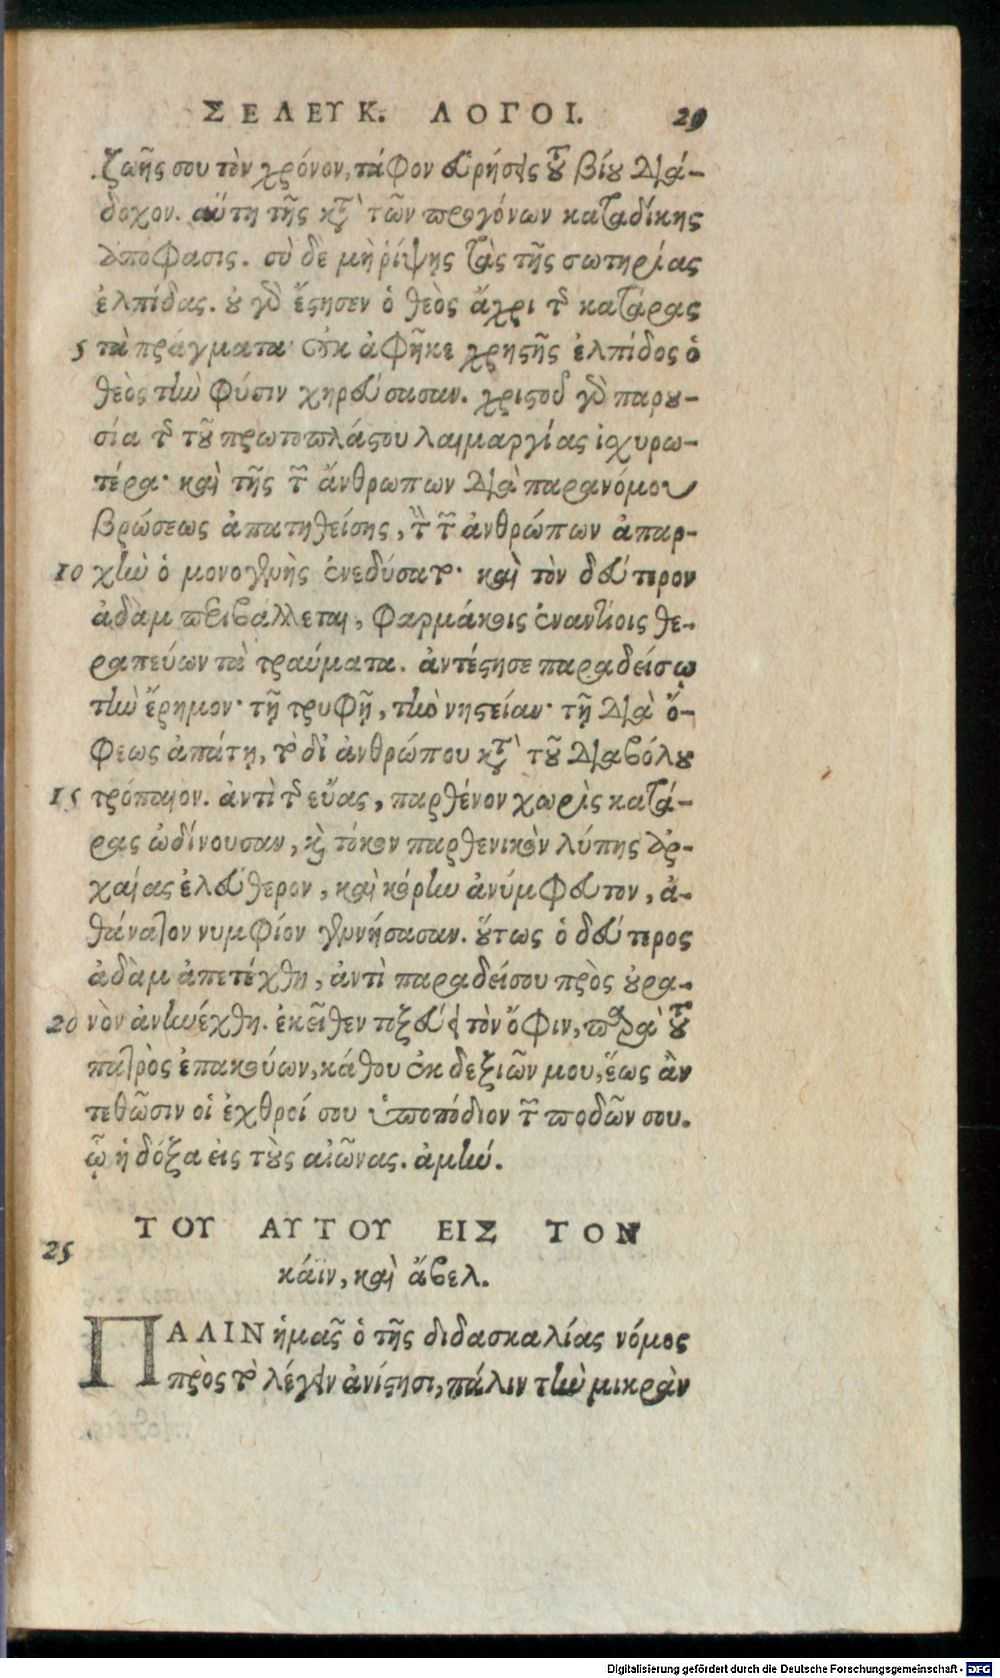 ΣΕΛΕΥΚ. ΛΟΓΟΙ. 29
ζωῆς σου τὸν χρόνον, τάφον εὑρήσεις τοῦ βίου διά-
δοχον. αὕτη τῆς κατὰ τῶν προγόνων καταδίκης
ἀπόφασις. σὺ δὲ μὴ ῥίψῃς τὰς τῆς σωτηρίας
ἐλπίδας. οὐ γὰρ ἔστησεν ὁ θεὸς ἄχρι τῆς κατάρας
5 τὰ πράγματα· οὐκ ἀφῆκε χρηστῆς ἐλπίδος ὁ
θεὸς τὴν φύσιν χηρεύσασαν. χριστοῦ γὰρ παρου-
σία τῆς τοῦ πρωτοπλάστου λαιμαργίας ἰσχυρω-
τέρα· καὶ τῆς τῶν ἄνθρωπων διὰ παρανόμου
βρώσεως ἀπατηθείσης, τὴν τῶν ἀνθρώπων ἀπαρ-
10 χὴν ὁ μονογενὴς ἐνεδύσατο· καὶ τὸν δεύτερον
ἀδὰμ περιβάλλεται, φαρμάκοις ἐναντίοις θε-
ραπεύων τὰ τραύματα. ἀντέστησε παραδείσῳ
τὴν ἔρημον· τῇ τρυφῇ, τὴν νηστείαν· τῇ διὰ ὄ-
φεως ἀπάτῃ, τὸ δι' ἀνθρώπου κατὰ τοῦ διαβόλου
15 τρόπαιον. ἀντὶ τῆς εὔας, παρθένον χωρὶς κατά-
ρας ὠδίνουσαν, καὶ τόκον παρθενικὸν λύπης ἀρ-
χαίας ἐλεύθερον, καὶ κόρην ἀνύμφευτον, ἀ-
θάνατον νυμφίον γεννήσασαν. οὕτως ὁ δεύτερος
ἀδὰμ ἀπετέχθη, ἀντὶ παραδείσου πρὸς οὐρα-
20 νὸν ἀνηνέχθη. ἐκεῖθεν τοξεύει τὸν ὄφιν, παρὰ τοῦ
πατρὸς ἐπακούων, κάθου ἐκ δεξιῶν μου, ἕως ἂν
τεθῶσιν οἱ ἐχθροί σου ὑποπόδιον τῶν ποδῶν σου.
ᾧ ἡ δόξα εἰς τοὺς αἰῶνας. ἀμήν.
ΤΟΥ ΑΥΤΟΥ ΕΙΣ ΤΟΝ
25 κάϊν, καὶ ἄβελ.
ΠΑΛΙΝ ἡμᾶς ὁ τῆς διδασκαλίας νόμος
πρὸς τὸ λέγειν ἀνίστησι, πάλιν τὴν μικρὰν
Digitalisierung gefördert durch die Deutsche Forschungsgemeinschaft - DFG